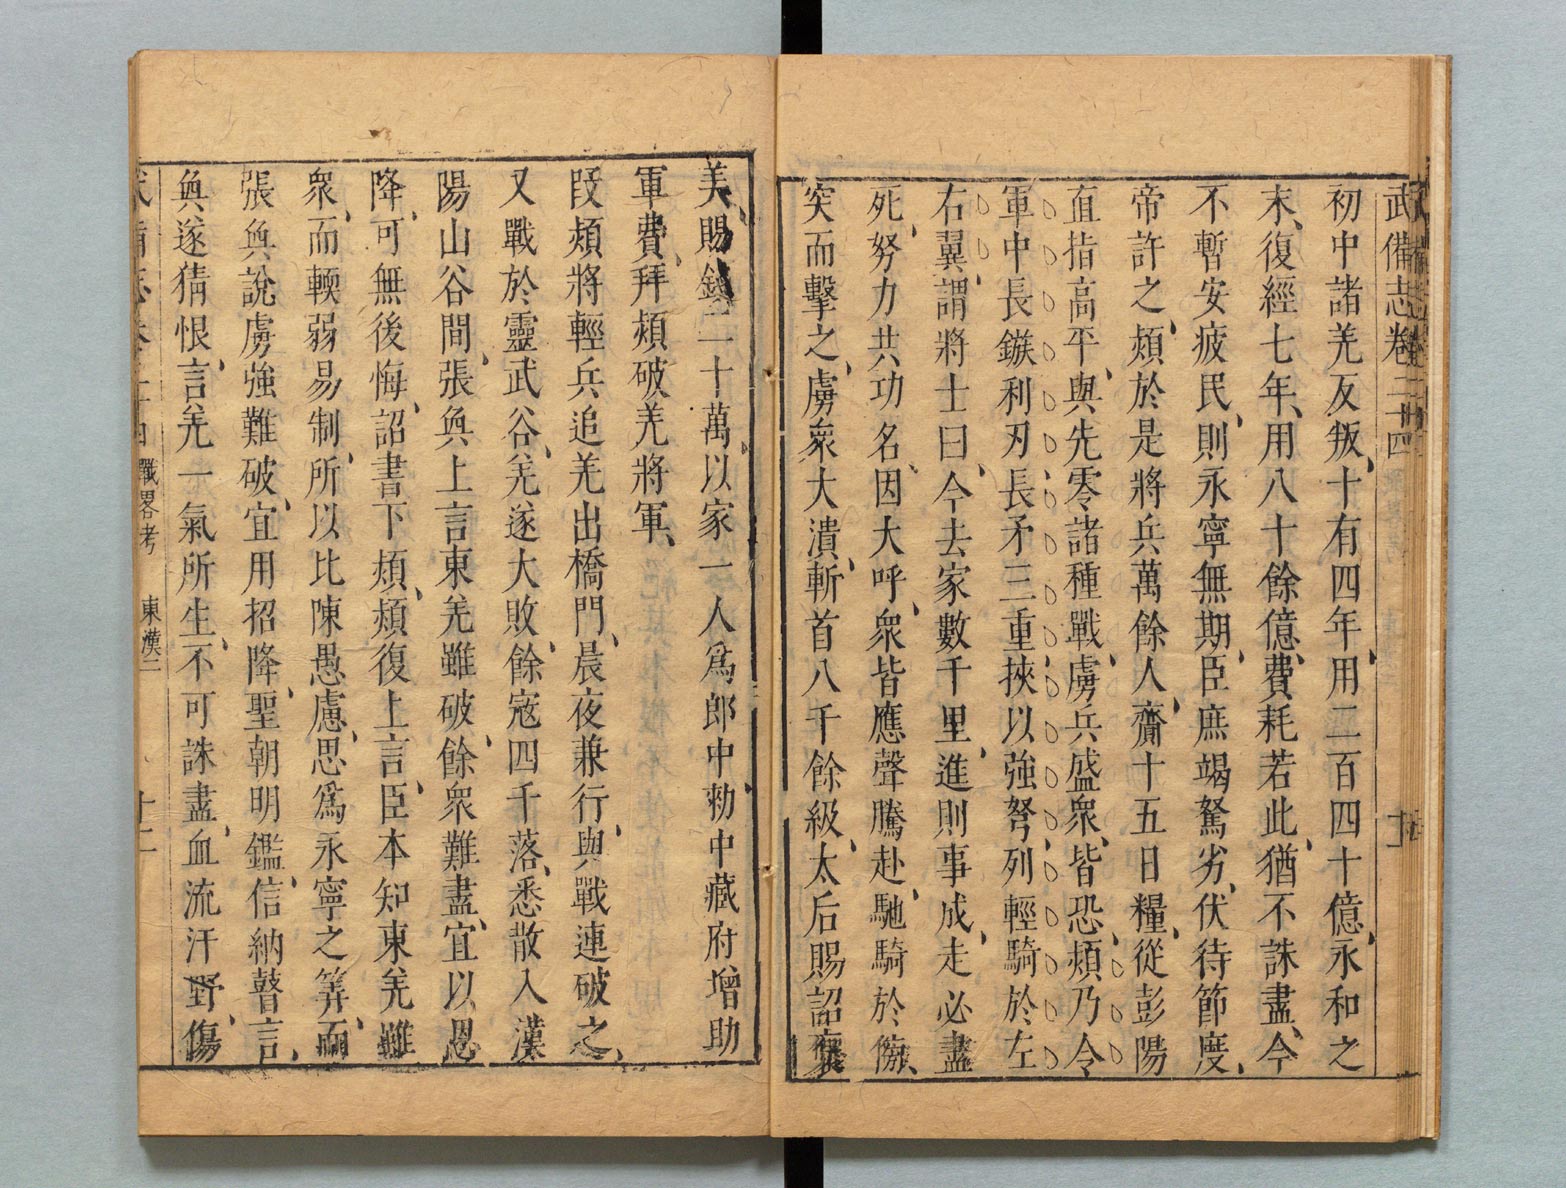 武備志卷二十四
初中諸羌反叛十有四年用二百四十億永和之
末復經七年用八十餘億費耗若此猶不誅盡今
不暫安疲民則永寧無期臣庶竭駑劣伏待節度
帝許之熲於是將兵萬餘人齎十五日糧從彭陽
直指高平與先零諸種戰虜兵盛衆皆恐熲乃令
軍中長鏃利刃長矛三重挾以強弩列輕騎於左
右翼謂將士曰今去家數千里進則事成走必盡
死努力共功名因大呼衆皆應聲騰赴馳騎於傍
突而擊之虜衆大潰斬首八千餘級太后賜詔襃
美賜錢二十萬以家一人爲郎中勑中藏府增助
軍費拜熲破羌將軍
段熲將輕兵追羌出橋門晨夜兼行與戰連破之
又戰於靈武谷羌遂大敗餘寇四千落悉散入漢
陽山谷間張奐上言東羌雖破餘衆難盡宜以恩
降可無後悔詔書下熲熲復上言臣本知東羌雖
衆而輭弱易制所以比陳愚慮思爲永寧之筭而
張奐說虜強難破宜用招降聖朝明鑑信納瞽言
奐遂猜恨言羌一氣所生不可誅盡血流汙野傷
戰畧考 東漢二 十二